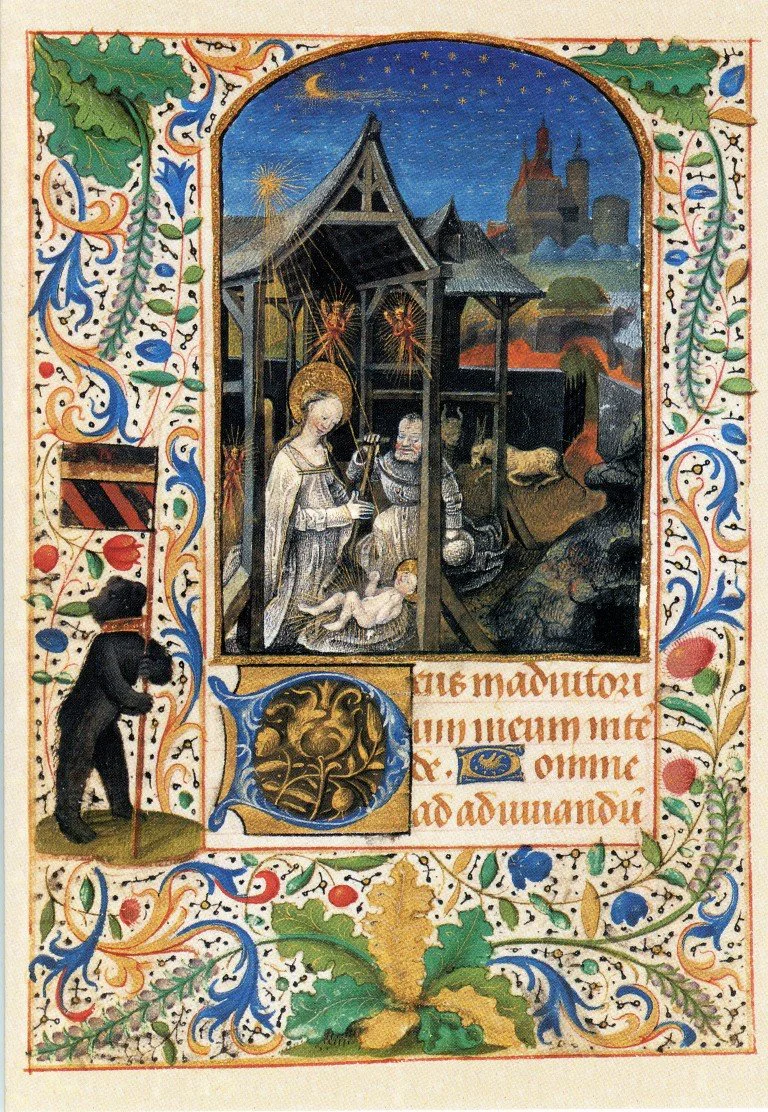 Deus in adiutori
um meum intē
de. Domine
ad adiuuandū